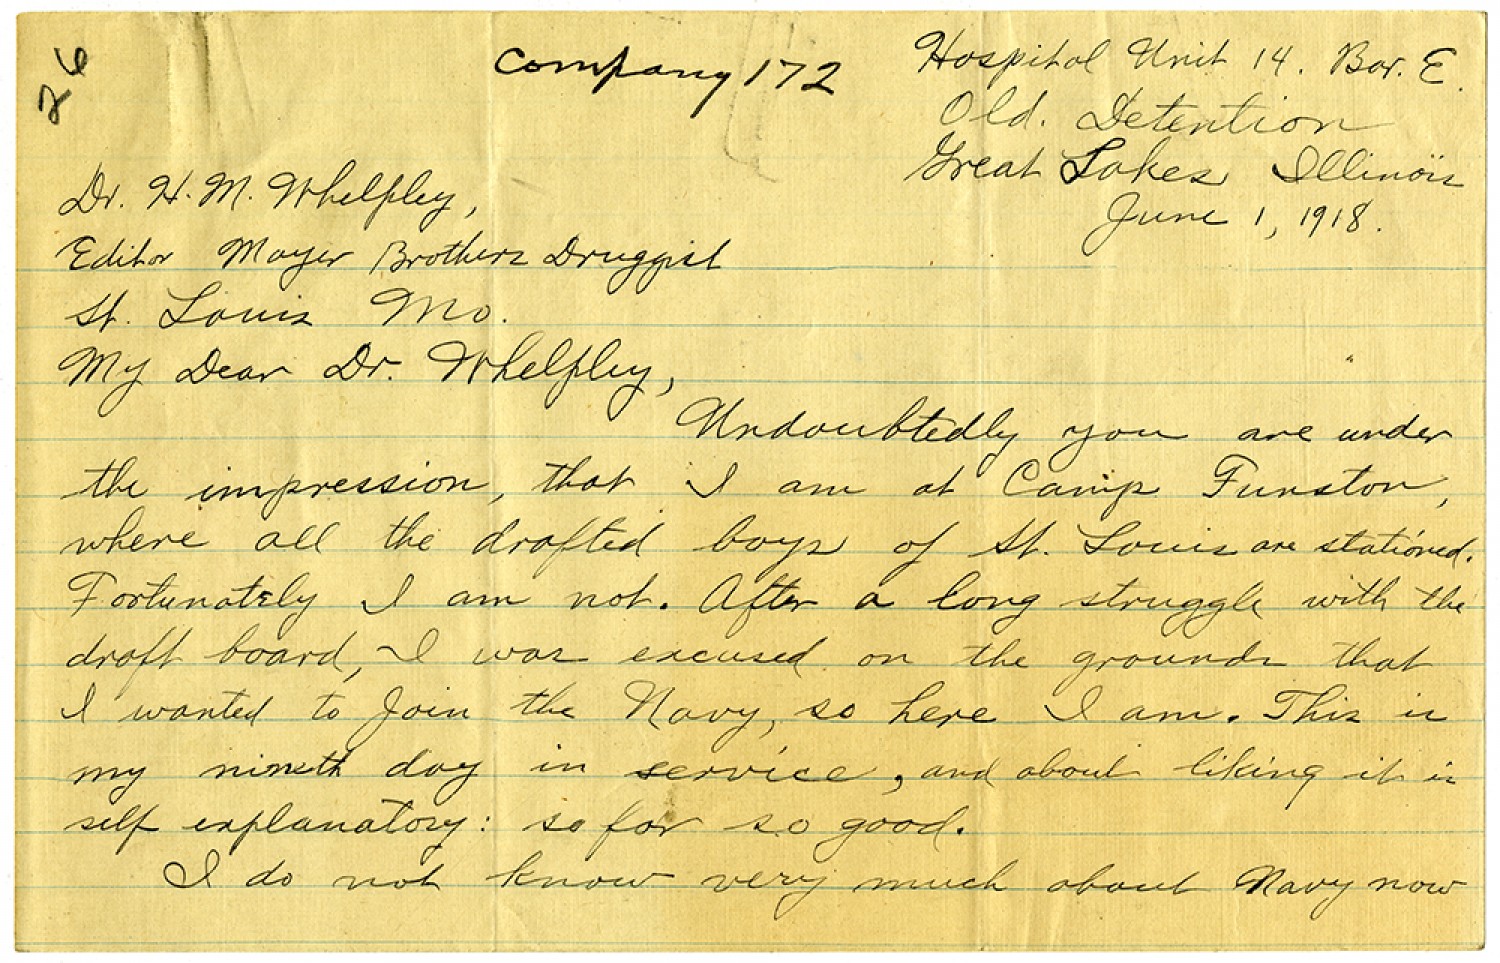 26
Company 172
Hospital Unit 14. Bar. E.
Old. Detention
Great Lakes Illinois
June 1, 1918.
Dr. H. M. Whelpley,
Editor Mayer Brothers Druggist
St. Louis Mo.
My Dear Dr. Whelpley,
Undoubtedly you are under
the impression, that I am at Camp Funston,
where all the drafted boys of St. Louis are stationed.
Fortunately I am not. After a long struggle with the
draft board, I was excused on the grounds that
I wanted to Join the Navy, so here I am. This is
my nineth day in service, and about liking it is
self explanatory: so far so good.
I do not know very much about Navy now